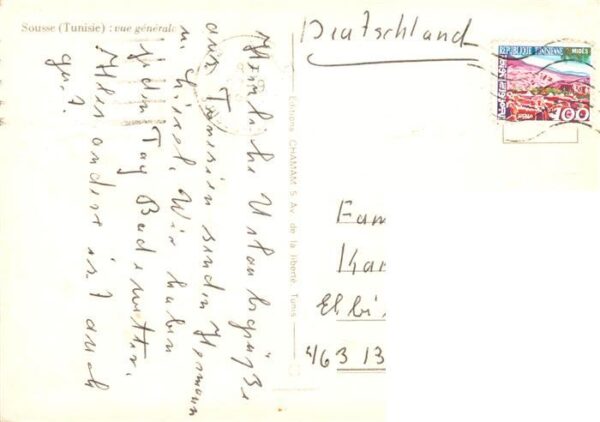 Sousse (Tunisie) : vue générale
Herzliche Urlaubsgrüße
aus Tunesien senden Hermann
u. Christel. Wir haben
jeden Tag Badewetter.
Alles andere ist auch
gut.
Editions CHAMAM 5 Av. de la liberté, Tunis
Deutschland
REPUBLIQUE TUNISIENNE
MIDES
100
Fam
Kar
Elbi
463 13